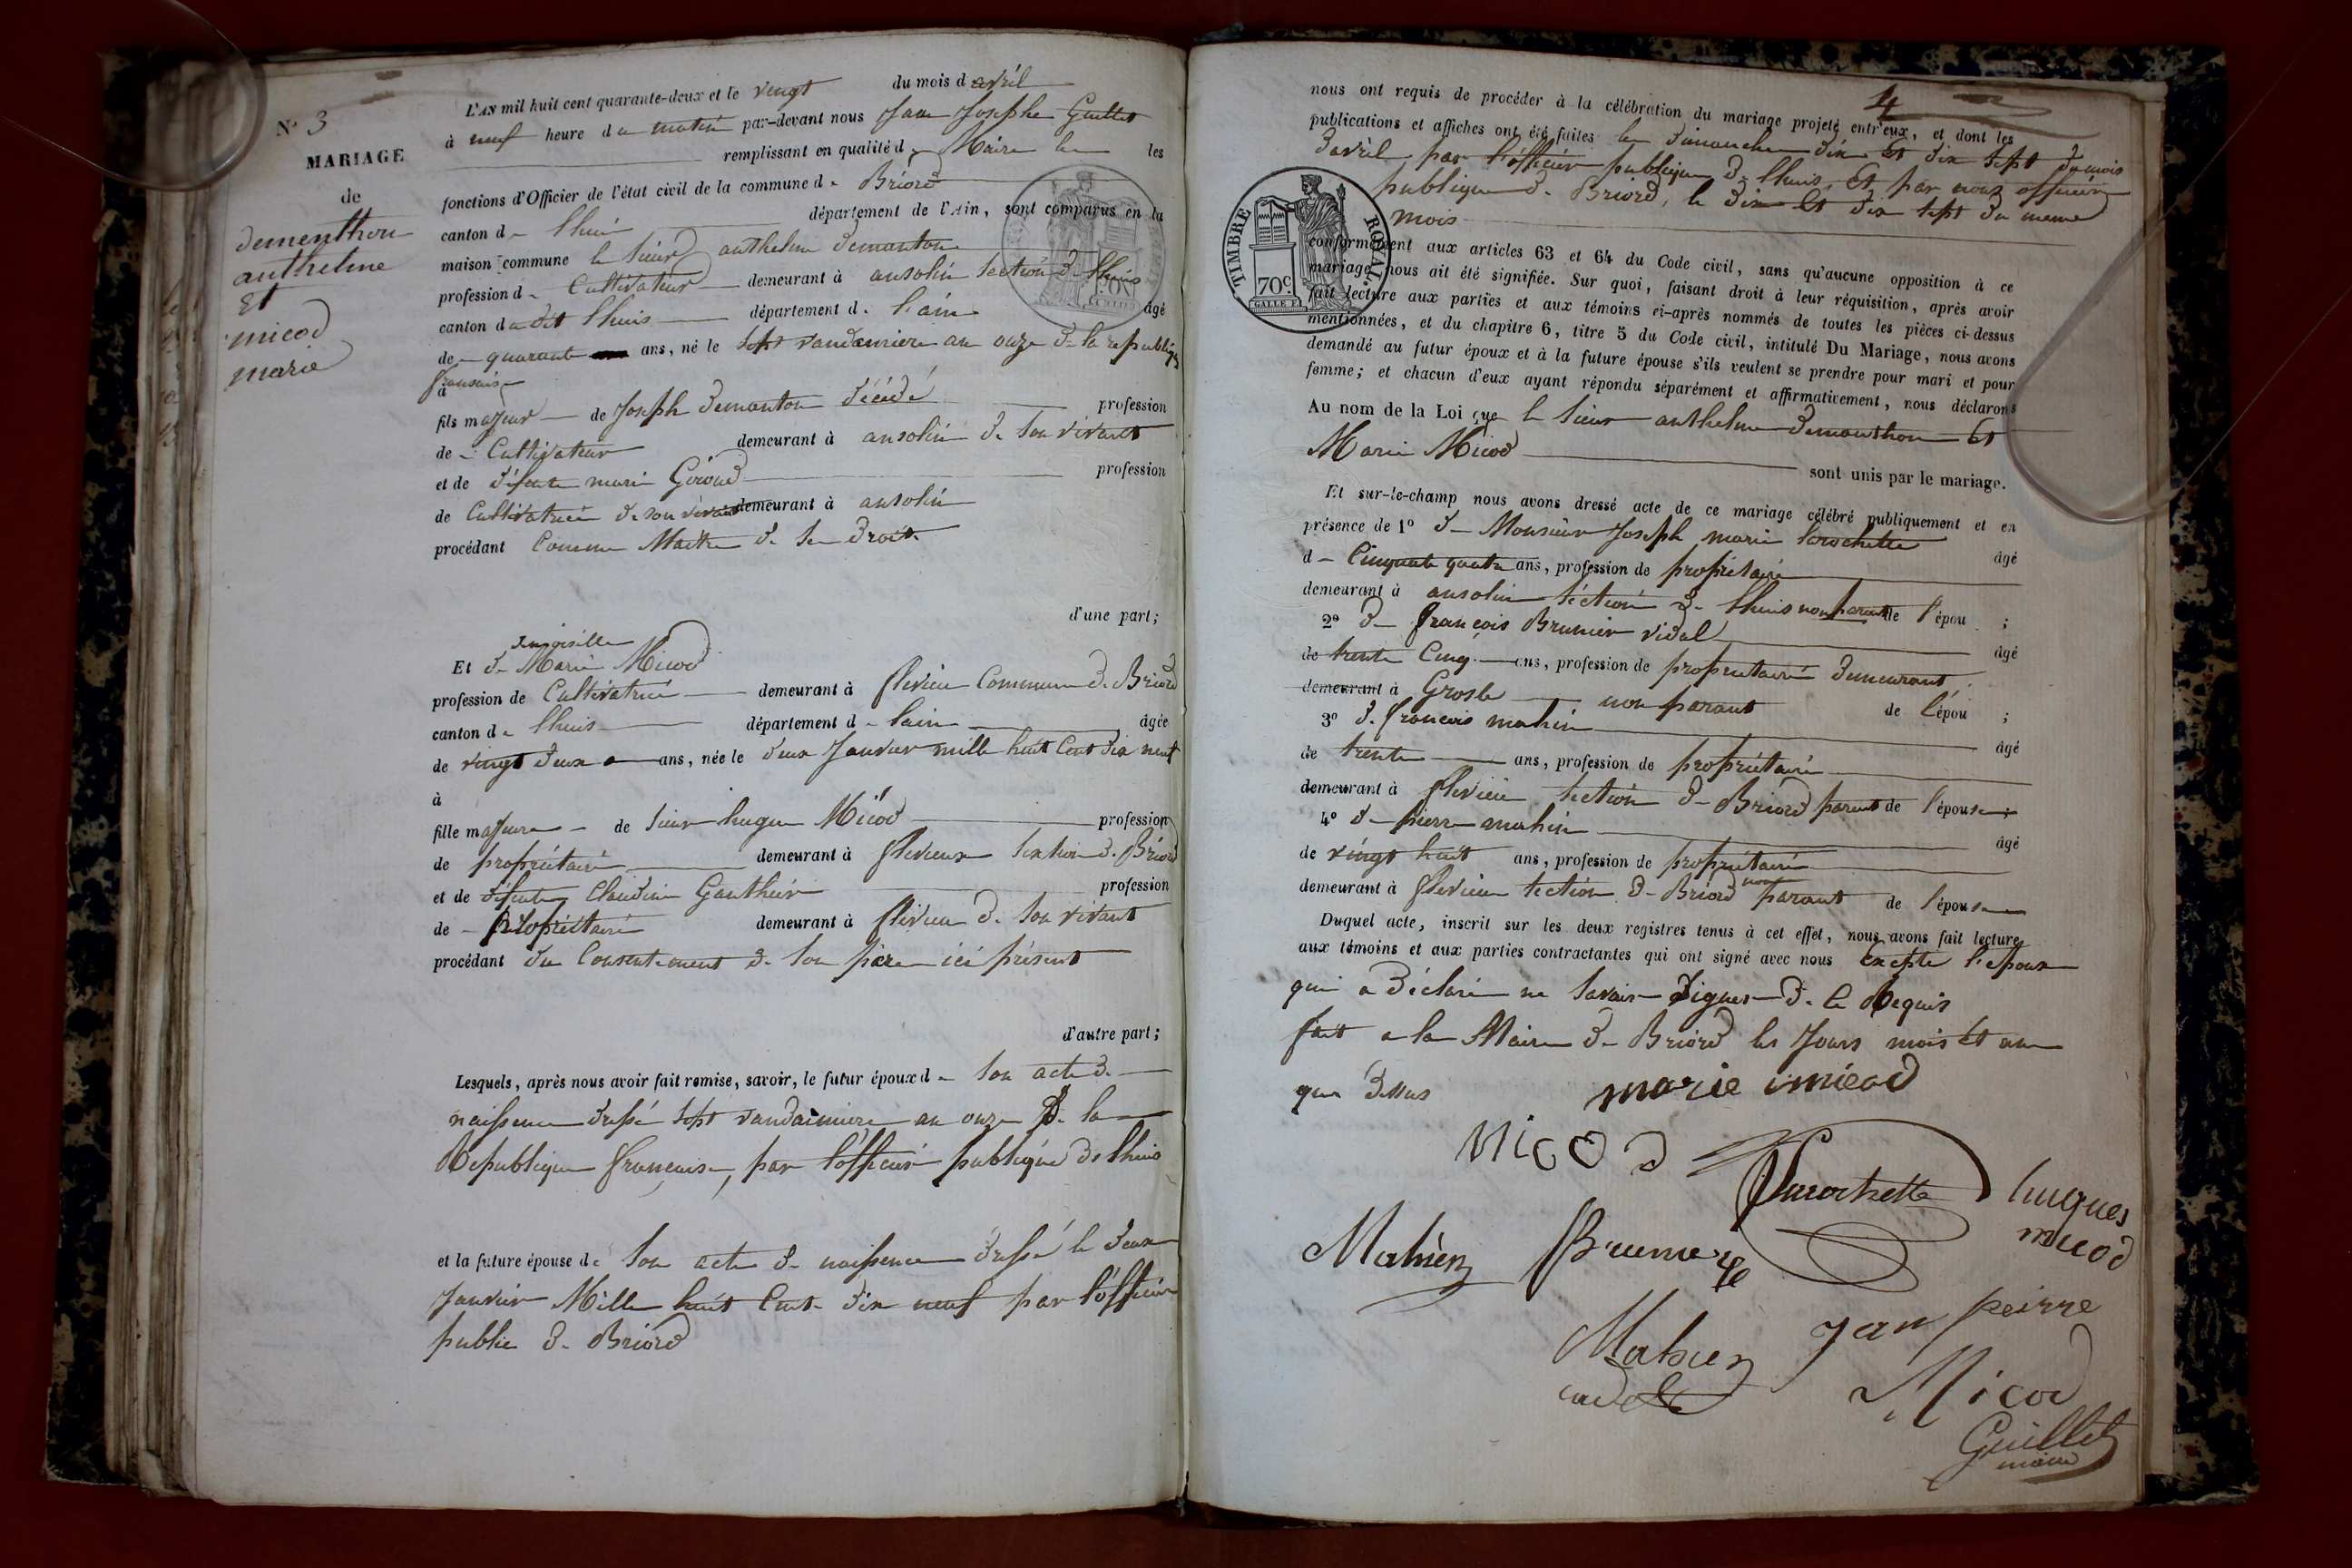 N° 3
MARIAGE
de
dementhon
anthelme
Et
micod
marie
L'AN mil huit cent quarante-deux et le vingt du mois d avril
à neuf heure du matin par-devant nous Jean Josephe Guillet
remplissant en qualité de Maire les
fonctions d'Officier de l'état civil de la commune de Briord
canton de Lhuis département de l'Ain, sont comparus en la
maison commune le sieur anthelme demanton
profession de Cultivateur demeurant à ansolin section de Lhuis
canton du dit Lhuis département de l'ain âgé
de quarante ans, né le sept vandamiere an onze de la republique
francaise
à
fils majeur de Joseph demanton décédé profession
de Cultivateur demeurant à ansolin de son vivant
et de défunte marie Giroud profession
de Cultivatrice de son vivant demeurant à ansolin
procédant Comme Maitre de se droits
d'une part;
demoiselle
Et de Marie Micod
profession de Cultivatrice demeurant à flevieu Commune de Briord
canton de Lhuis département de l'ain âgée
de vingt deux ans, née le deux Janvier mille huit Cent dix neuf
à
fille majeure de sieur hugue Micod profession
de propriétaire demeurant à flevieux section de Briord
et de défunte Claudine Gauthier profession
de propriétaire demeurant à flevieu de son vivant
procédant du Consentement de son père ici présent
d'autre part;
Lesquels, après nous avoir fait remise, savoir, le futur époux de son acte de
naissence dressé sept vandaimiere an onze de la
Republique francaise, par l'officier publique de Lhuis
et la future épouse de son acte de naissence dressé le deux
Janvier Mille huit Cent dix neuf par l'officier
public de Briord
4
nous ont requis de procéder à la célébration du mariage projeté entr'eux, et dont les
publications et affiches ont été faites les dimanche dix et dix sept du mois
d'avril par l'officier publique de Lhuis, et par nous officier
publique de Briord, le dix et dix sept du meme
mois
TIMBRE ROYAL.
70c
conformément aux articles 63 et 64 du Code civil, sans qu'aucune opposition à ce
mariage nous ait été signifiée. Sur quoi, faisant droit à leur réquisition, après avoir
fait lecture aux parties et aux témoins ci-après nommés de toutes les pièces ci-dessus
mentionnées, et du chapitre 6, titre 5 du Code civil, intitulé Du Mariage, nous avons
demandé au futur époux et à la future épouse s'ils veulent se prendre pour mari et pour
femme; et chacun d'eux ayant répondu séparément et affirmativement, nous déclarons
Au nom de la Loi que le sieur anthelme demanthon et
Marie Micod sont unis par le mariage.
Et sur-le-champ nous avons dressé acte de ce mariage célébré publiquement et en
présence de 1° de Monsieur Joseph marie Larochette âgé
de Cinquante quatre ans, profession de propriétaire
demeurant à ansolin séction de Lhuis non parant de l'épou ;
2° de françois Brunier vidal âgé
de trente Cinq ans, profession de propriétaire demeurant
demeurant à Grosle non parant de l'épou ;
3° de francois mahin âgé
de trente ans, profession de propriétaire
demeurant à flevieu section de Briord parent de l'épouse ;
4° de pierre mahin âgé
de vingt huit ans, profession de propriétaire
demeurant à flevieu section de Briord non parant de l'épouse
Duquel acte, inscrit sur les deux registres tenus à cet effet, nous avons fait lecture
aux témoins et aux parties contractantes qui ont signé avec nous Excepté l'epoux
qui a déclaré ne savoir signer de ce Requis
fait a la Mairie de Briord les Jours mois et an
que dessus
marie micod
MICOD
Larochette
hugues
micod
Mahien
Brunier
Mahien
cadet
Jan peirre
Micod
Guillet
maire